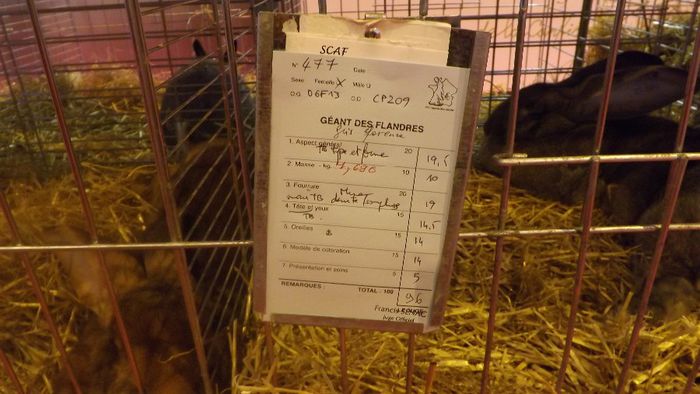 SCAF
N° 477 Cage
Sexe Femelle X Mâle
OD D6F13 OG CP209
GÉANT DES FLANDRES
gris garenne
1. Aspect général 20 19,5
TB type et forme
2. Masse - kg. 7,690 10 10
3. Fourrure 20 19
TB densité
4. Tête et yeux 15 14,5
TB.
5. Oreilles B 15 14
6. Modèle de coloration 15 14
7. Présentation et soins 5 5
REMARQUES : TOTAL : 100 96
Francis
Juge Officiel